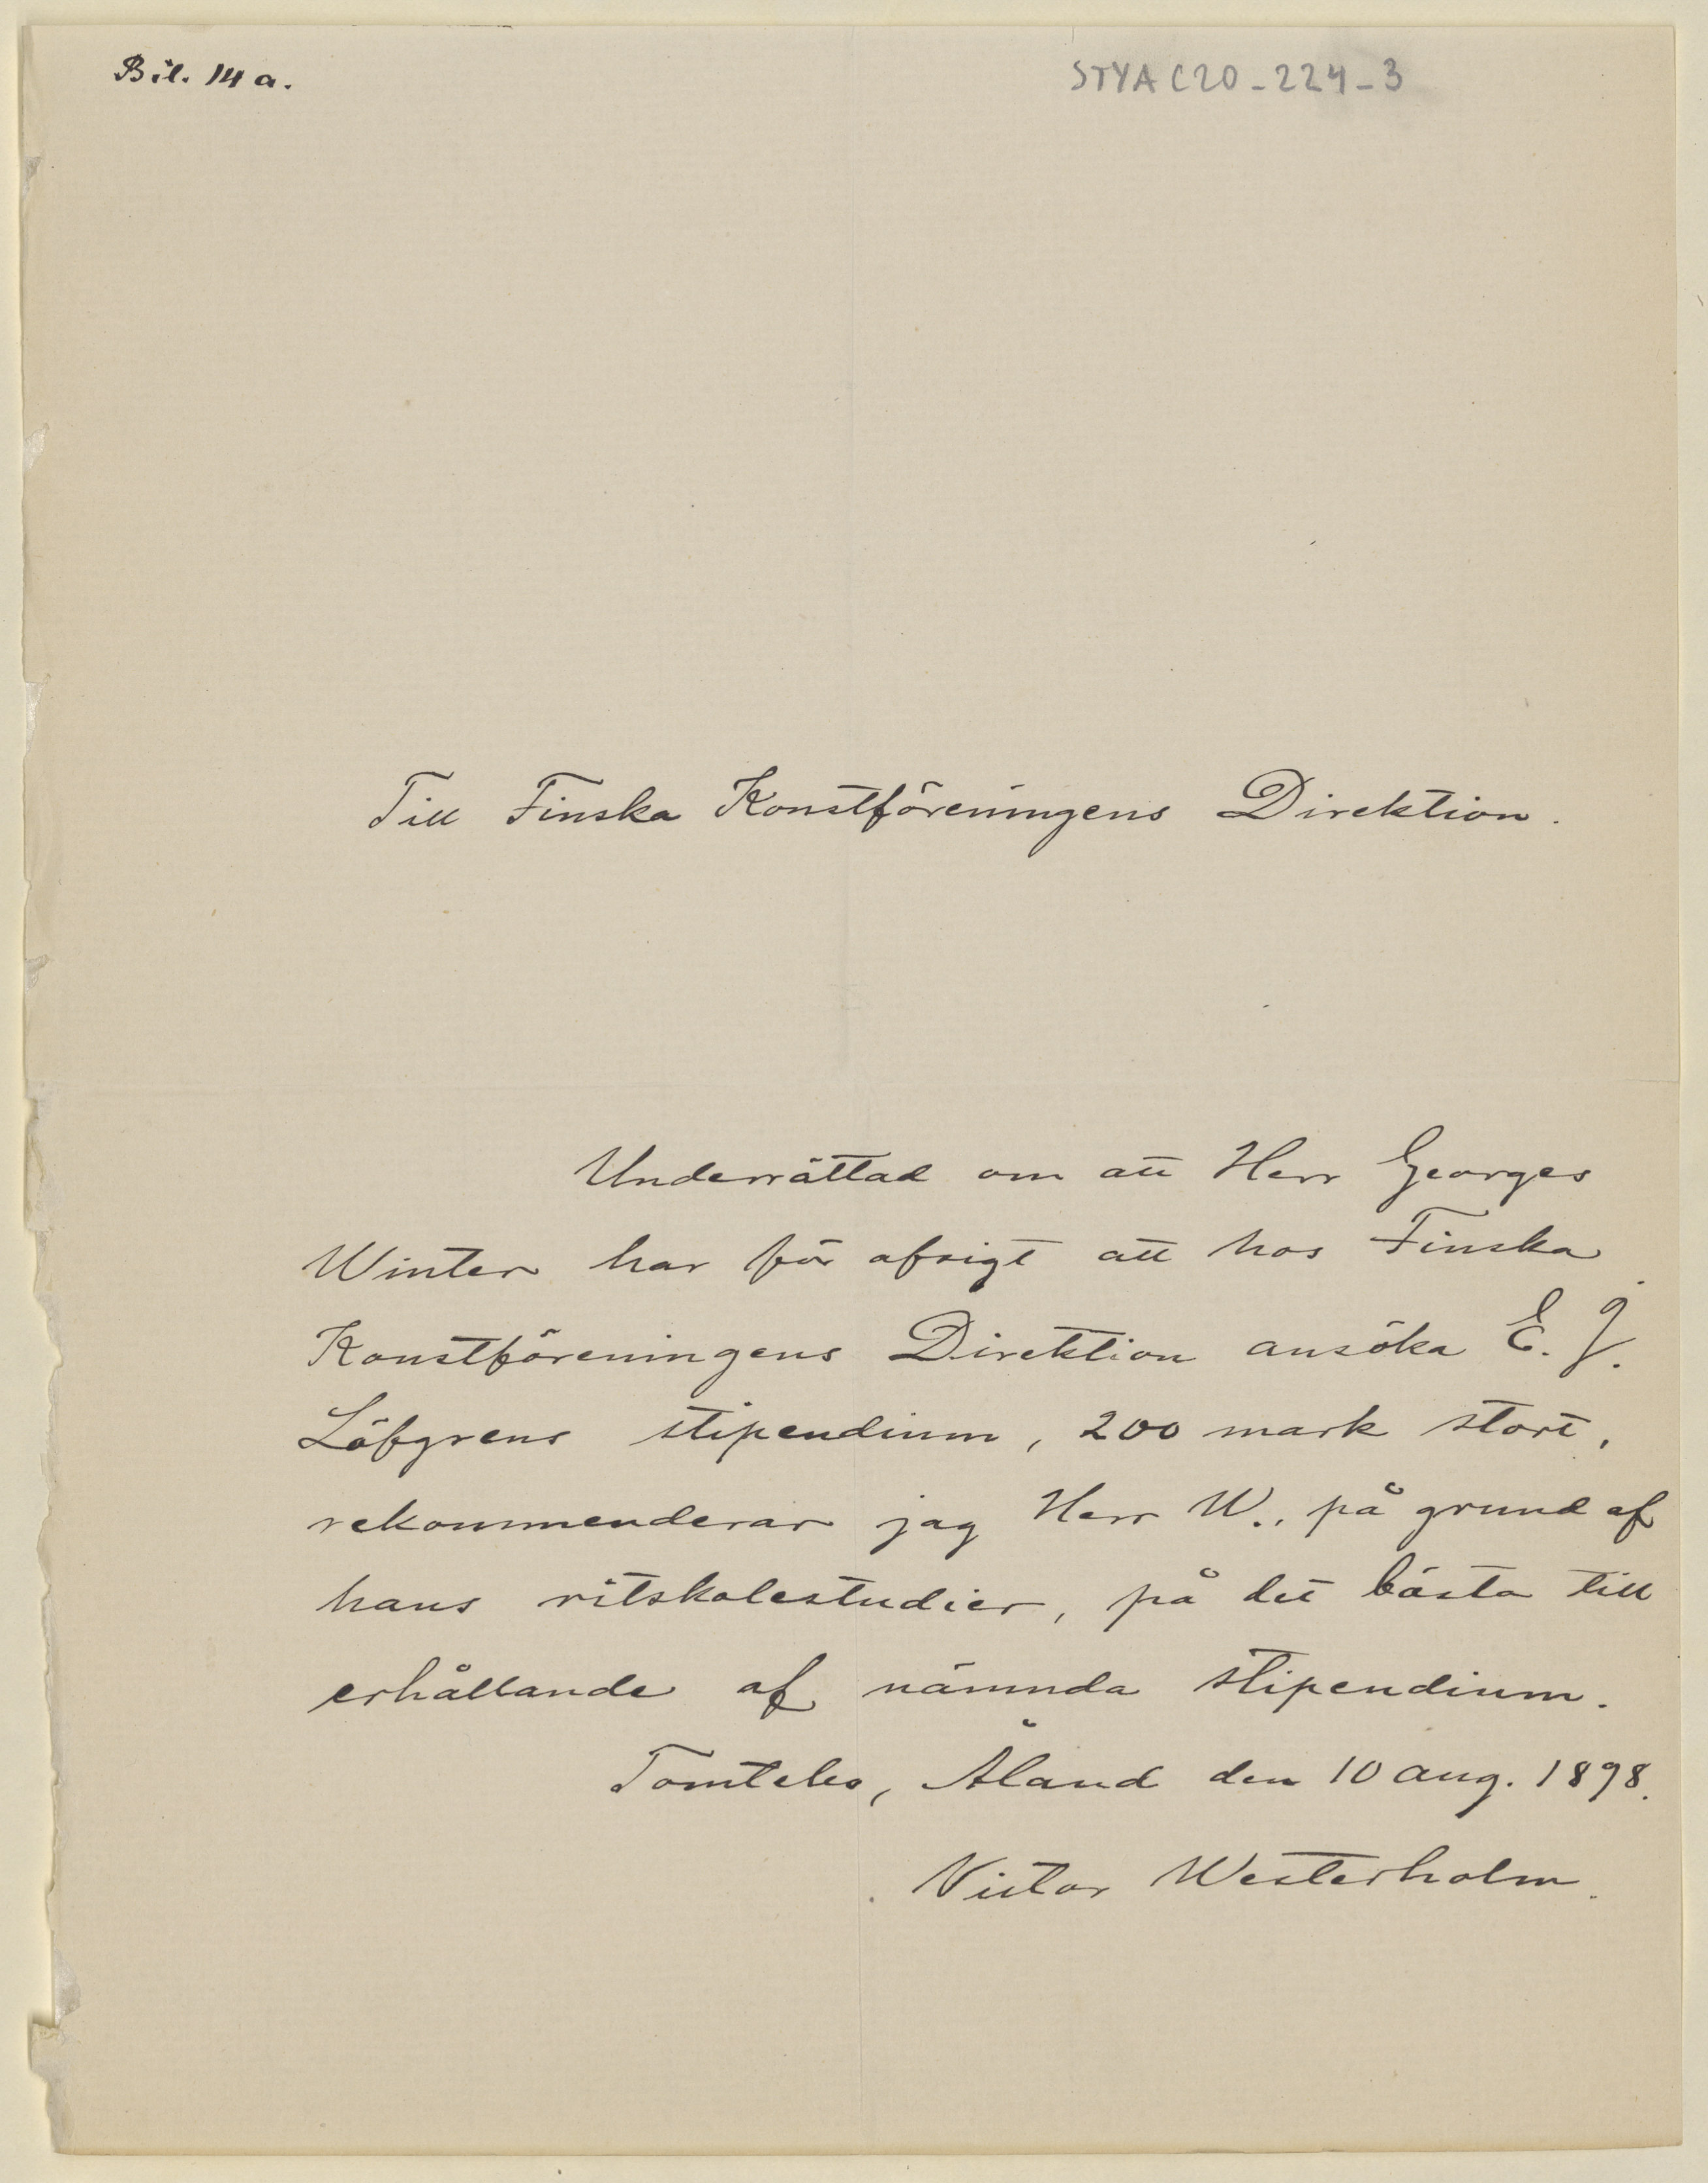 Bil. 14 a.
STYA C20-224-3
Till Finska Konstföreningens Direktion.
Underrättad om att Herr Georges
Winter har för afsigt att hos Finska
Konstföreningens Direktion ansöka E. J.
Löfgrens stipendium, 200 mark stort,
rekommenderar jag Herr W., på grund af
hans ritskolestudier, på det bästa till
erhållande af nämnda stipendium.
Tomtebo, Åland den 10 aug. 1898.
Victor Westerholm.